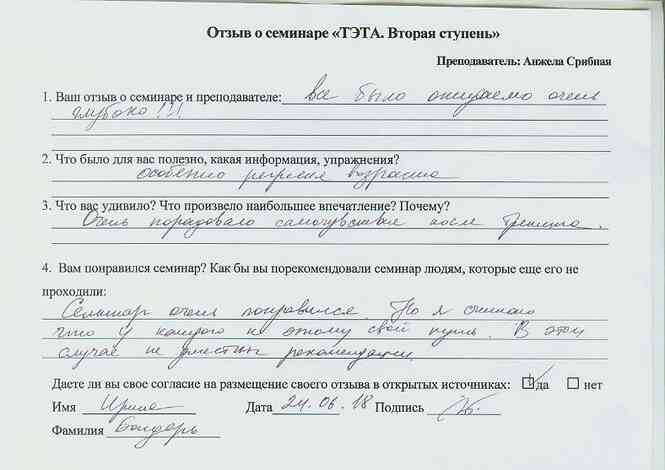 Отзыв о семинаре «ТЭТА. Вторая ступень»
Преподаватель: Анжела Срибная
1. Ваш отзыв о семинаре и преподавателе: все было ожидаемо очень
глубоко!!!
2. Что было для вас полезно, какая информация, упражнения?
Особенно регрессия возраста
3. Что вас удивило? Что произвело наибольшее впечатление? Почему?
Очень порадовало самочувствие после тренинга.
4. Вам понравился семинар? Как бы вы порекомендовали семинар людям, которые еще его не
проходили:
Семинар очень понравился. Но я считаю
что у каждого к этому свой путь. В этом
случае не уместны рекомендации.
Даете ли вы свое согласие на размещение своего отзыва в открытых источниках: да нет
Имя Ирина Дата 24.06.18 Подпись
Фамилия Бондарь